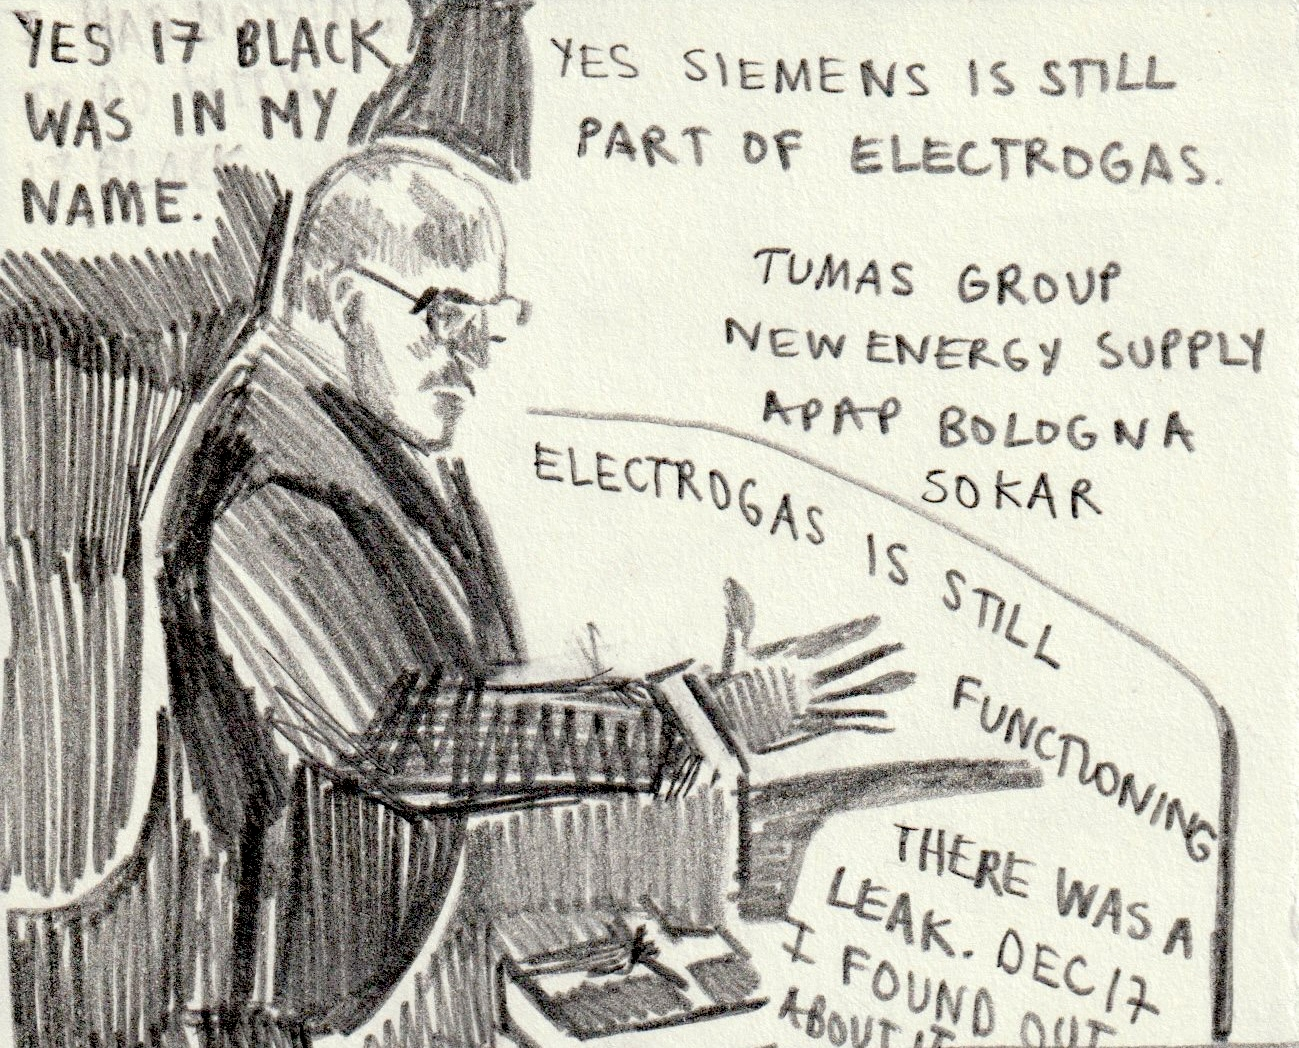 YES 17 BLACK
WAS IN MY
NAME.
YES SIEMENS IS STILL
PART OF ELECTROGAS.
TUMAS GROUP
NEW ENERGY SUPPLY
APAP BOLOGNA
SOKAR
ELECTROGAS IS STILL FUNCTIONING
THERE WAS A
LEAK. DEC 17
I FOUND OUT
ABOUT IT